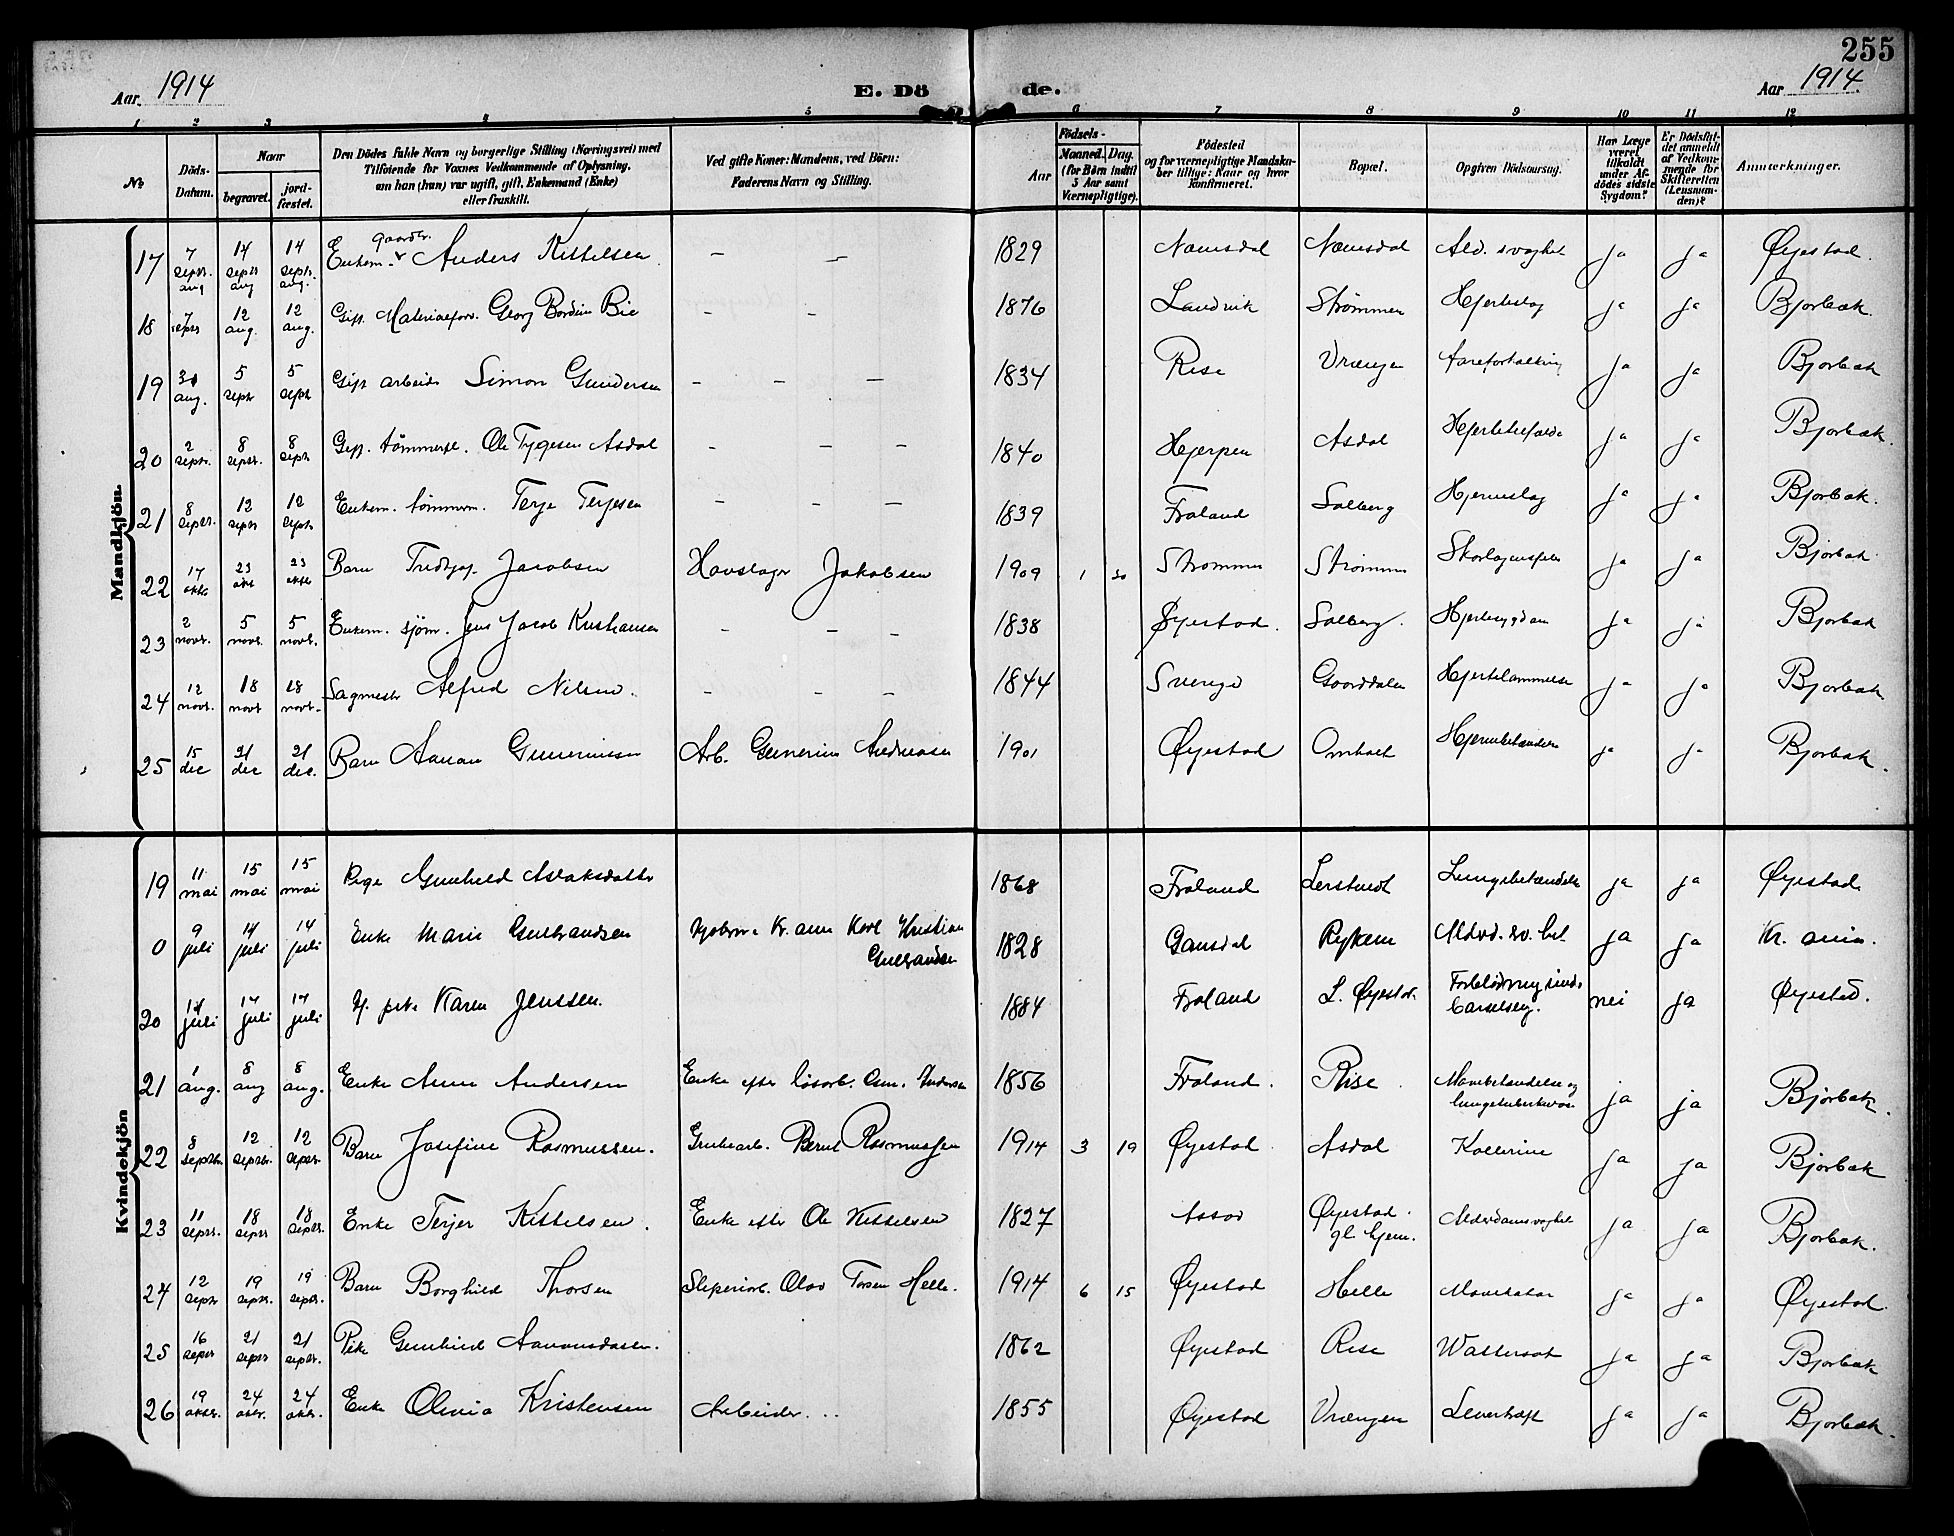 255
Aar 1914
E. Dö de.
Aar 1914
1 2 3 4 5 6 7 8 9 10 11 12
No
Döds-Datum.
Naar
begravet.
jordfæstet.
Den Dödes fulde Navn og borgerlige Stilling (Næringsvei) med Tilföiende for Voxnes Vedkommende af Oplysning, om han (hun) var ugift, gift, Enkemand (Enke) eller fraskilt.
Ved gifte Koner: Mandens, ved Börn: Faderens Navn og Stilling.
Aar
Födsels-
Maaned. Dag. (for Börn indtil 5 Aar samt Værnepligtige).
Födested og for værnepligtige Mandskaber tillige: Naar og hvor konfirmeret.
Bopæl.
Opgiven Dödsaarsag.
Har Læge været tilkaldt under Afdödes sidste Sygdom?
Er Dödsfaldet anmeldt af Vedkommende for Skifteretten (Lensmanden)?
Anmerkninger.
Mandkjön.
17 7 septr. 14 septr 14 septr. Enkem. gaardbr. Anders Kittelsen – – 1829 Næmsdal Næmsdal Ald. svaghet ja ja Øyestad.
18 7 aug 12 aug. 12 aug. Gift. Materialforv. Georg Bordin Bie – – 1876 Landvik Strømmen Hjerteslag ja ja Bjorbæk.
19 30 aug. 5 septr 5 septr Gift arbeider Simon Gundersen – – – 1834 Rise Vrængen Aareforkalkning ja ja Bjorbæk
20 2 septr. 8 septr. 8 septr Gift. tømmerm. Ole Tygesen Asdal – – – 1840 Hjerpen Asdal ja ja Bjorbæk.
21 8 septr. 12 septr 12 septr Enkem. tømmerm. Terje Terjesen – – – 1839 Froland Solberg Hjerneslag ja ja Bjorbæk.
22 17 oktr 23 okt 23 oktr Barn Fredtjof Jacobsen Hovslager Jakobsen 1909 1 30 Strømmen Strømmen Skarlagensfeber ja ja Bjorbæk
23 2 novr. 5 novr. 5 novr. Enkem. sjøm. Jens Jacob Kristiansen – – – 1838 Øyestad. Solberg. Hjertesygdom ja ja Bjorbæk
24 12 novr. 18 novr 18 novr. Sagmester Alfred Nilsen. – – – 1844 Sverige Goarddalen Hjertelammelse ja ja Bjorbæk
25 15 dec 21 dec 21 dec. Barn Aanon Gunerinssen Arb. Gunerius Andreasen 1901 Øyestad Omholt Hjernebetændelse ja ja Bjorbæk.
Kvindekjön
19 11 mai 15 mai 15 mai Pige Gunhild Aslaksdatter 1868 Froland Lerstvedt Lungebetændelse ja ja Øyestad.
0 9 juli 14 juli 14 juli Enke Marie Gulbrandsen Kr. ania Karl Kristian Gulbrandsen 1828 Gausdal Rykene Alderd. sv. het ja ja Kr. ania.
20 14 juli 17 juli 17 juli Karen Jenssen. 1884 Froland L. Øyestad. Forblødning under barselseng. nei ja Øyestad.
21 1 aug. 8 aug 8 aug. Enke Anne Andersen Enke efter løsarb. Osm. Andersen 1856 Froland. Rise. Mavebetændelse og lungetuberkulose ja ja Bjorbæk.
22 8 septbr. 12 septbr. 12 septr. Barn Josefine Rasmussen. Grubearb. Bernt Rasmussen 1914 3 19 Øyestad Asdal Kollerine ja ja Bjorbæk
23 11 septr. 18 septr 18 septr. Enke Terjer Kittelsen. Enke efter Ole Kittelsen 1827 Øyestad gl. hjem. Alderdomssvaghet ja ja Bjorbæk.
24 12 septr 19 septr. 19 septr. Barn Borghild Thorsen Sliperiarb. Olav Torsen Helle. 1914 6 15 Øyestad Helle Mavekatar ja ja Øyestad.
25 16 septr 21 septr 21 septr. Pike Gunhild Aanonsdatter. 1862 Øyestad Rise Wattersot ja ja Bjorbæk
26 19 oktr. 24 oktr. 24 oktr. Enke Olevia Kristensen Arbeider... 1855 Øyestad Vrængen Leverkræft ja ja Bjorbæk.